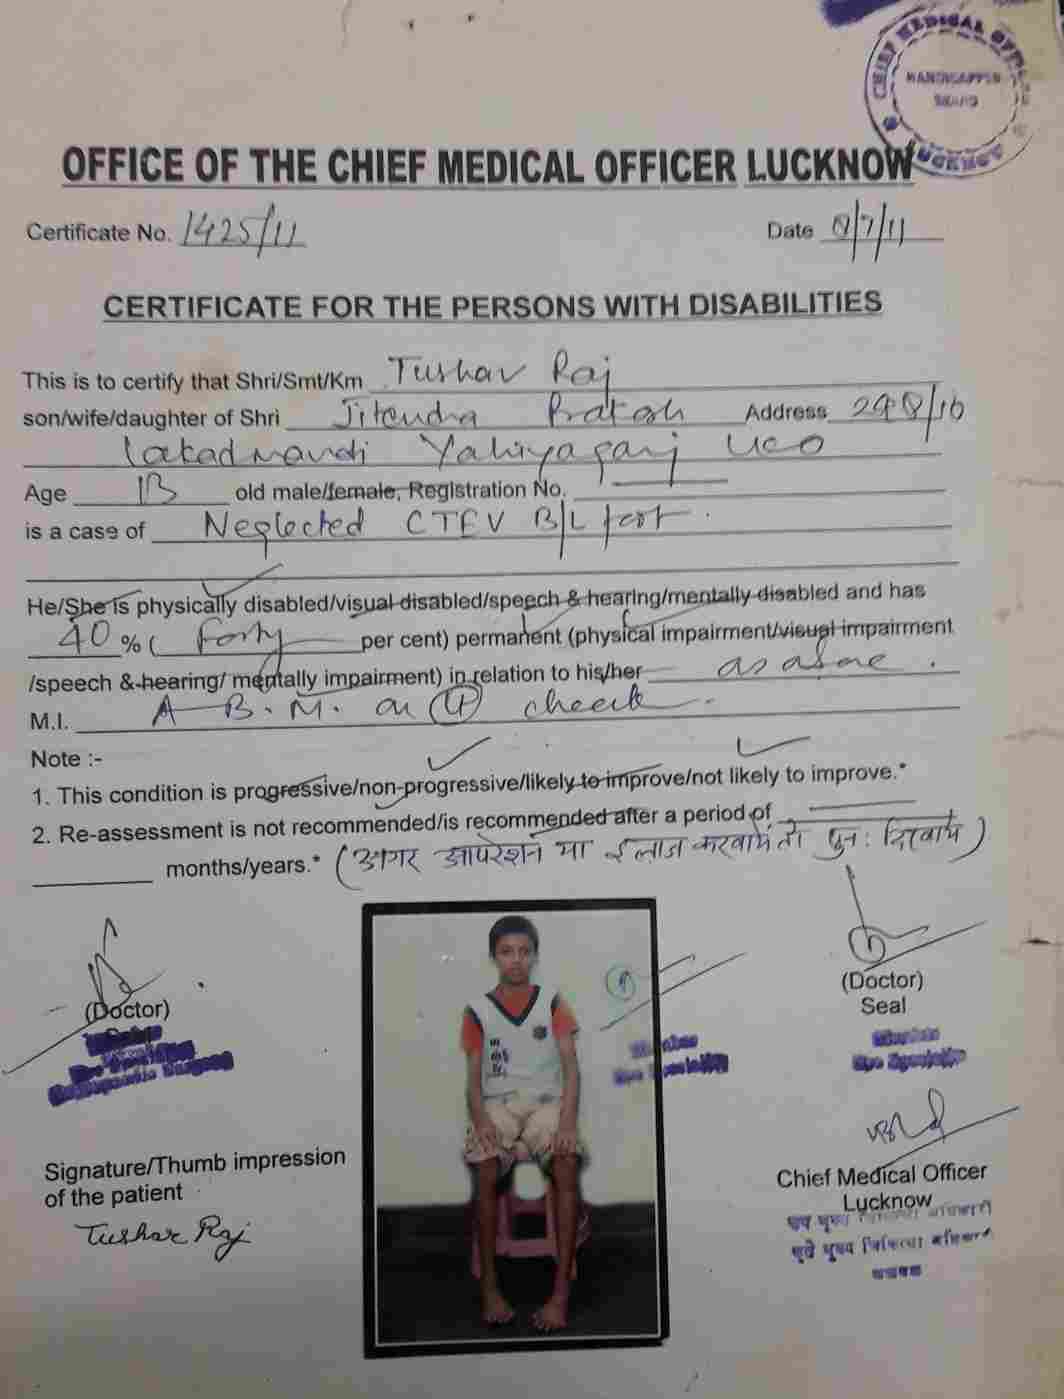 CHIEF MEDICAL OFFICER
HANDICAPPED
BOARD
LUCKNOW
OFFICE OF THE CHIEF MEDICAL OFFICER LUCKNOW
Certificate No. 1425/11 Date 8/7/11
CERTIFICATE FOR THE PERSONS WITH DISABILITIES
This is to certify that Shri/Smt/Km Tushar Raj
son/wife/daughter of Shri Jitendra Prakash Address 298/16
Lakadmandi Yahiyaganj LKO
Age 13 old male/female, Registration No.
is a case of Neglected CTEV B/L foot.
He/She is physically disabled/visual disabled/speech & hearing/mentally disabled and has
40 % ( Forty per cent) permanent (physical impairment/visual impairment
/speech & hearing/ mentally impairment) in relation to his/her as above.
M.I. A B.M. on cheek.
Note :-
1. This condition is progressive/non-progressive/likely to improve/not likely to improve.*
2. Re-assessment is not recommended/is recommended after a period of
months/years.* (अगर आपरेशन या ईलाज करवायें तो पुन: दिखायें)
(Doctor)
Orthopaedic Surgeon
(Doctor)
Seal
Member
Eye Specialist
Member
Eye Specialist
Signature/Thumb impression
of the patient
Tushar Raj
Chief Medical Officer
Lucknow
मुख्य चिकित्सा अधिकारी
लखनऊ